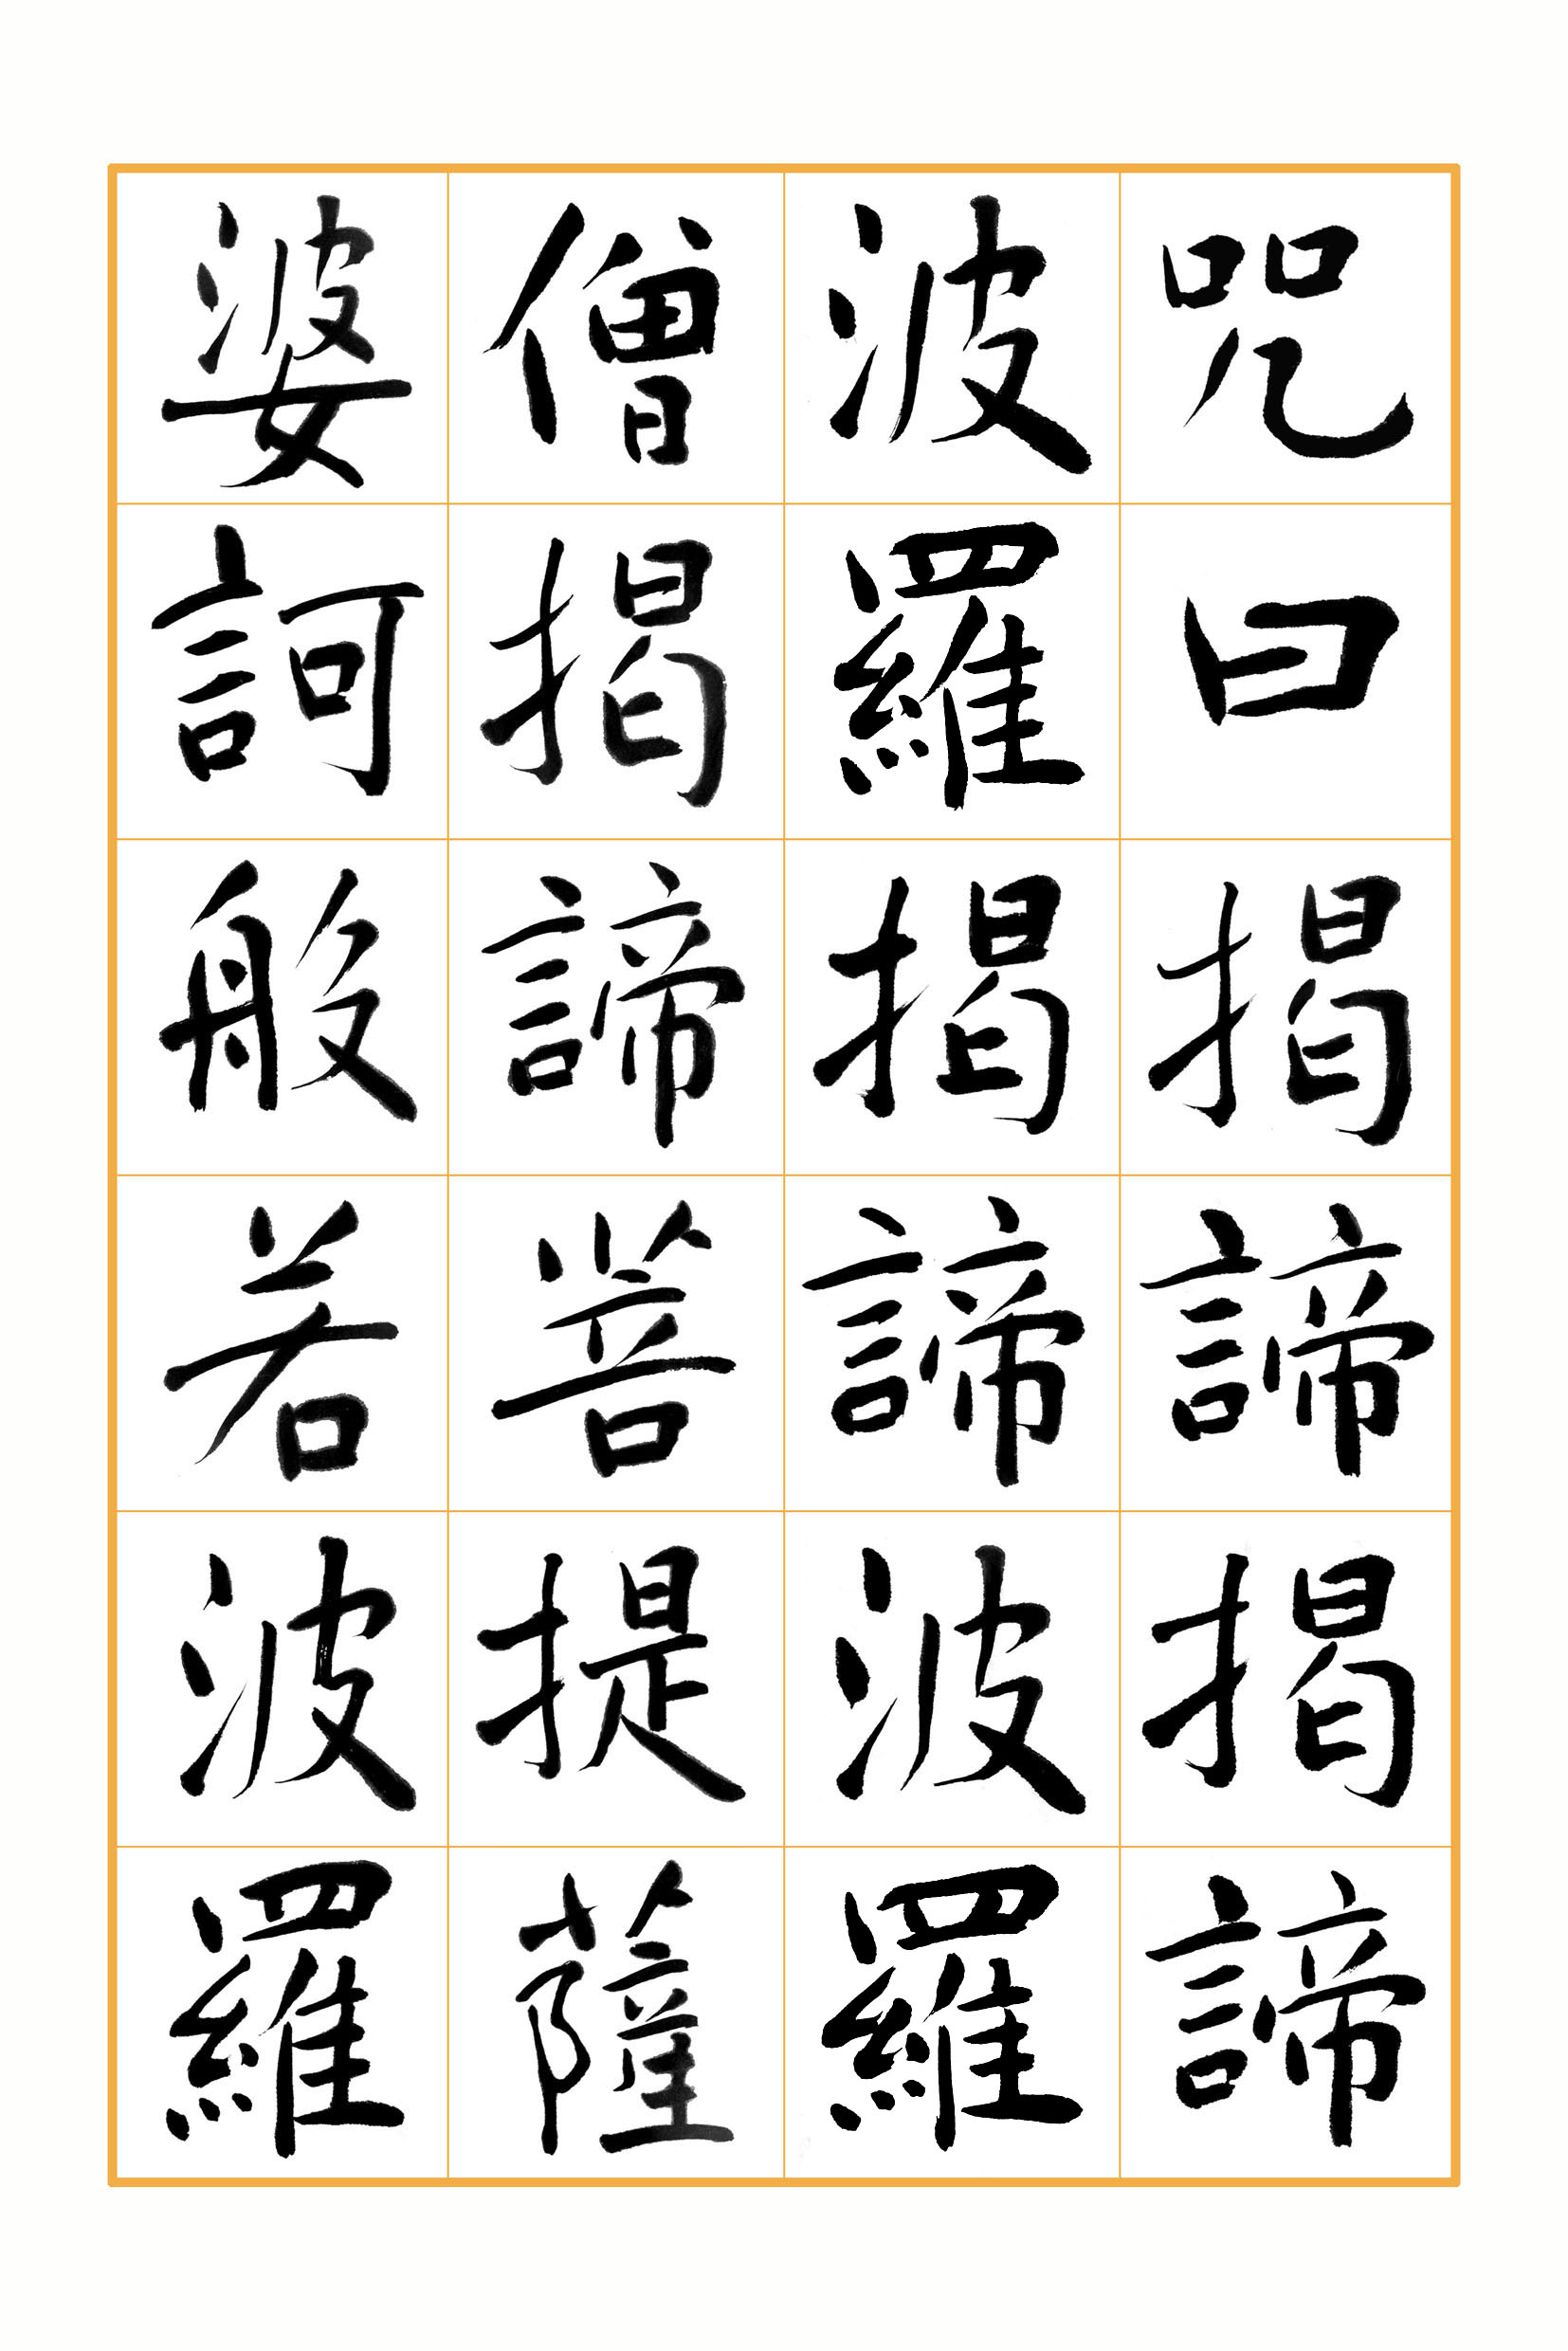 咒曰揭諦揭諦
波羅揭諦波羅
僧揭諦菩提薩
婆訶般若波羅